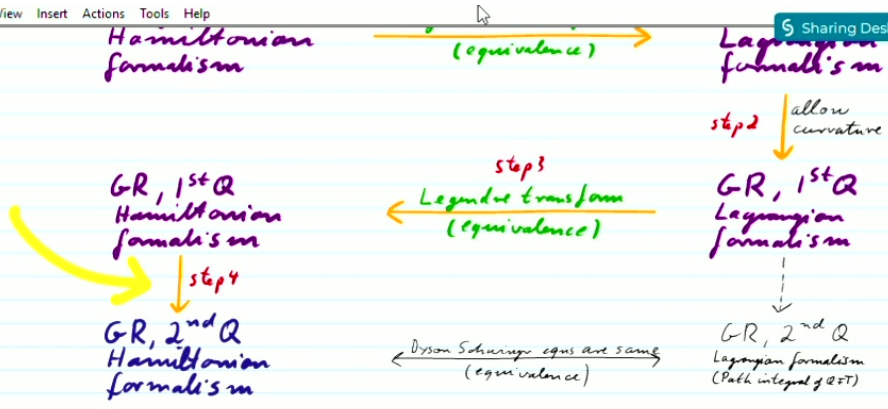 View Insert Actions Tools Help
Sharing Des
Hamiltonian
formalism
(equivalence)
Lagrangian
formalism
step 2
allow
curvature
step 3
GR, 1st Q
Hamiltonian
formalism
Legendre transform
(equivalence)
GR, 1st Q
Lagrangian
formalism
step 4
GR, 2nd Q
Hamiltonian
formalism
Dyson Schwinger eqns are same
(equivalence)
GR, 2nd Q
Lagrangian formalism
(Path integral of QFT)